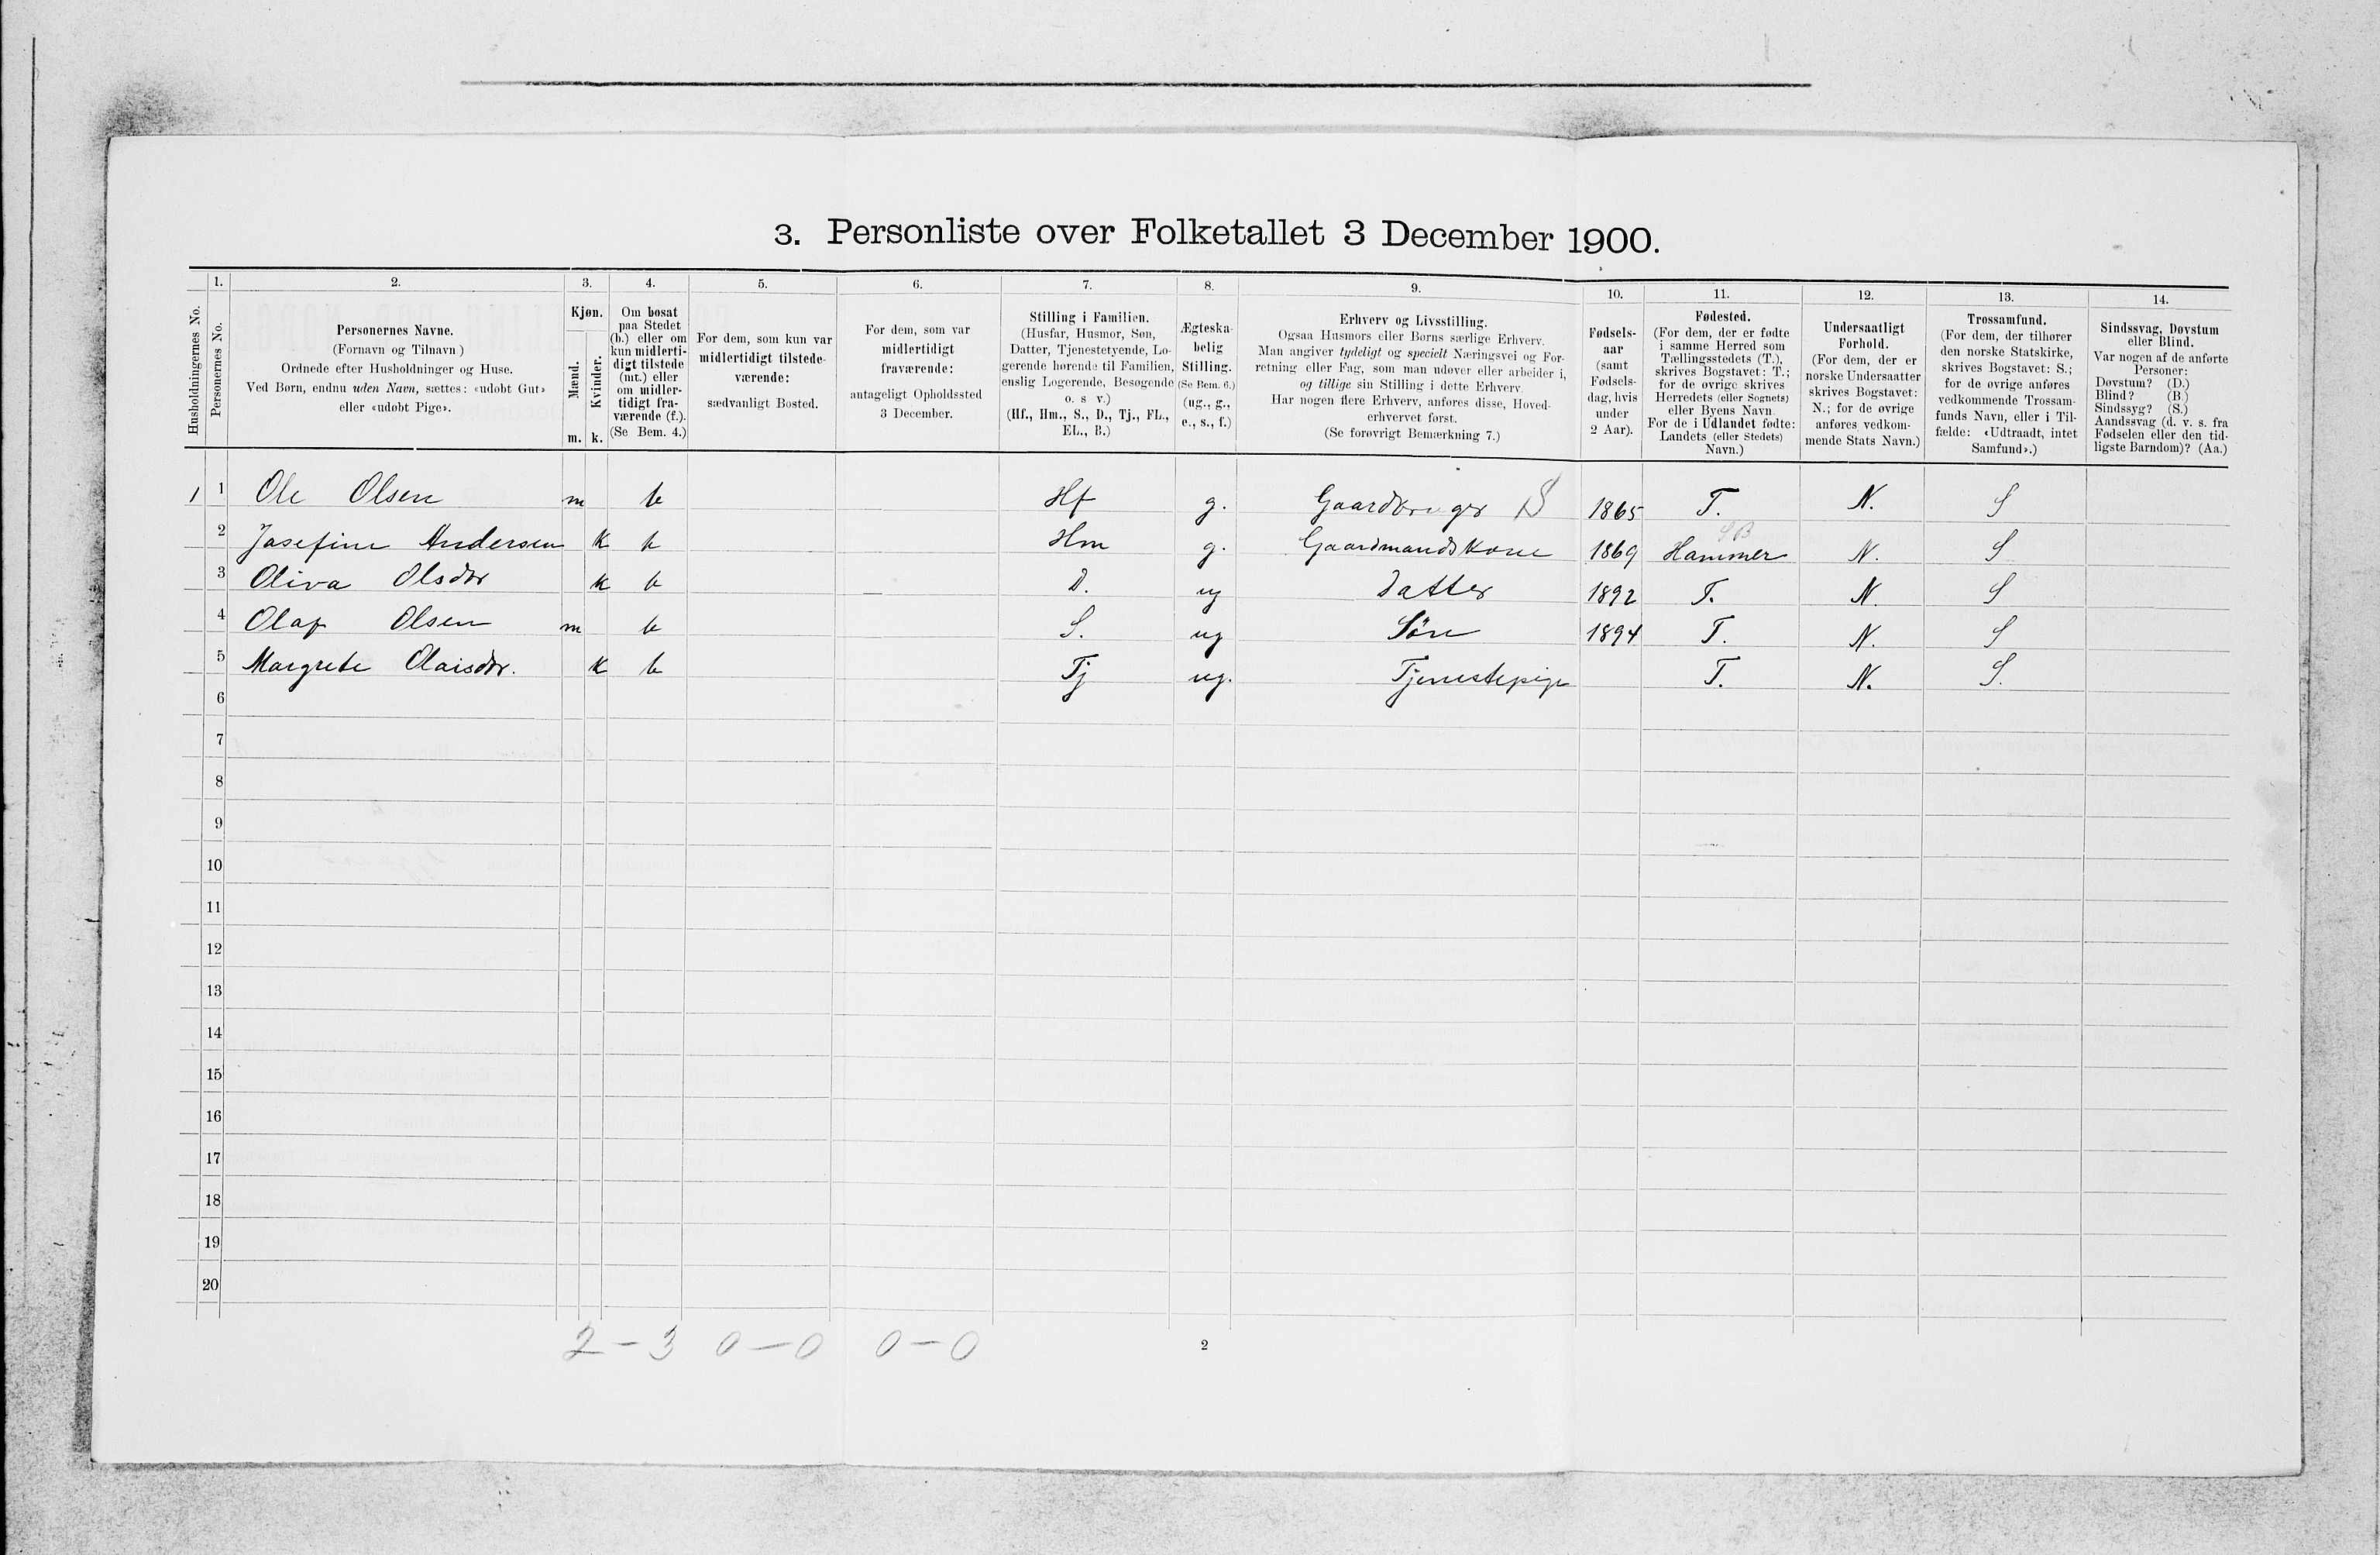 3. Personliste over Folketallet 3 December 1900.
Husholdningernes No.
1.
Personernes No.
2.
Personernes Navne.
(Fornavn og Tilnavn.)
Ordnede efter Husholdninger og Huse.
Ved Børn, endnu uden Navn, sættes: «udøbt Gut»
eller «udøbt Pige».
3.
Kjøn.
Mænd.
Kvinder.
m. k.
4.
Om bosat
paa Stedet
(b.) eller om
kun midlerti-
digt tilstede
(mt.) eller
om midler-
tidigt fra-
værende (f.).
(Se Bem. 4.)
5.
For dem, som kun var
midlertidigt tilstede-
værende:
sædvanligt Bosted.
6.
For dem, som var
midlertidigt
fraværende:
antageligt Opholdssted
3 December.
7.
Stilling i Familien.
(Husfar, Husmor, Søn,
Datter, Tjenestetyende, Lo-
gerende hørende til Familien,
enslig Logerende, Besøgende
o. s. v.)
(Hf., Hm., S., D., Tj., FL.,
EL., B.)
8.
Ægteska-
belig
Stilling.
(Se Bem. 6.)
(ug., g.,
e., s., f.)
9.
Erhverv og Livsstilling.
Ogsaa Husmors eller Børns særlige Erhverv.
Man angiver tydeligt og specielt Næringsvei og For-
retning eller Fag, som man udøver eller arbeider i,
og tillige sin Stilling i dette Erhverv.
Har nogen flere Erhverv, anføres disse, Hoved-
erhvervet først.
(Se forøvrigt Bemærkning 7.)
10.
Fødsels-
aar
(samt
Fødsels-
dag, hvis
under
2 Aar).
11.
Fødested.
(For dem, der er fødte
i samme Herred som
Tællingsstedets (T.),
skrives Bogstavet: T.;
for de øvrige skrives
Herredets (eller Sognets)
eller Byens Navn.
For de i Udlandet fødte:
Landets (eller Stedets)
Navn.)
12.
Undersaatligt
Forhold.
(For dem, der er
norske Undersaatter
skrives Bogstavet:
N.; for de øvrige
anføres vedkom-
mende Stats Navn.)
13.
Trossamfund.
(For dem, der tilhører
den norske Statskirke,
skrives Bogstavet: S.;
for de øvrige anføres
vedkommende Trossam-
funds Navn, eller i Til-
fælde: «Udtraadt, intet
Samfund».)
14.
Sindssvag, Døvstum
eller Blind.
Var nogen af de anførte
Personer:
Døvstum? (D.)
Blind? (B.)
Sindssyg? (S.)
Aandssvag (d. v. s. fra
Fødselen eller den tid-
ligste Barndom)? (Aa.)
1 1 Ole Olsen m b Hf g. Gaardbruger S 1865 T. N. S
SB
2 Josefine Andersen k b Hm g. Gaardmandskone 1869 Hammer N. S
3 Oliva Olsdtr k b D. ug Datter 1892 T. N. S
4 Olaf Olsen m b S. ug Sön 1894 T. N. S
5 Margrete Olaisdtr. k b Tj ug. Tjenestepige T. N. S.
6
7
8
9
10
11
12
13
14
15
16
17
18
19
20
2 – 3 0 – 0 0 – 0
2